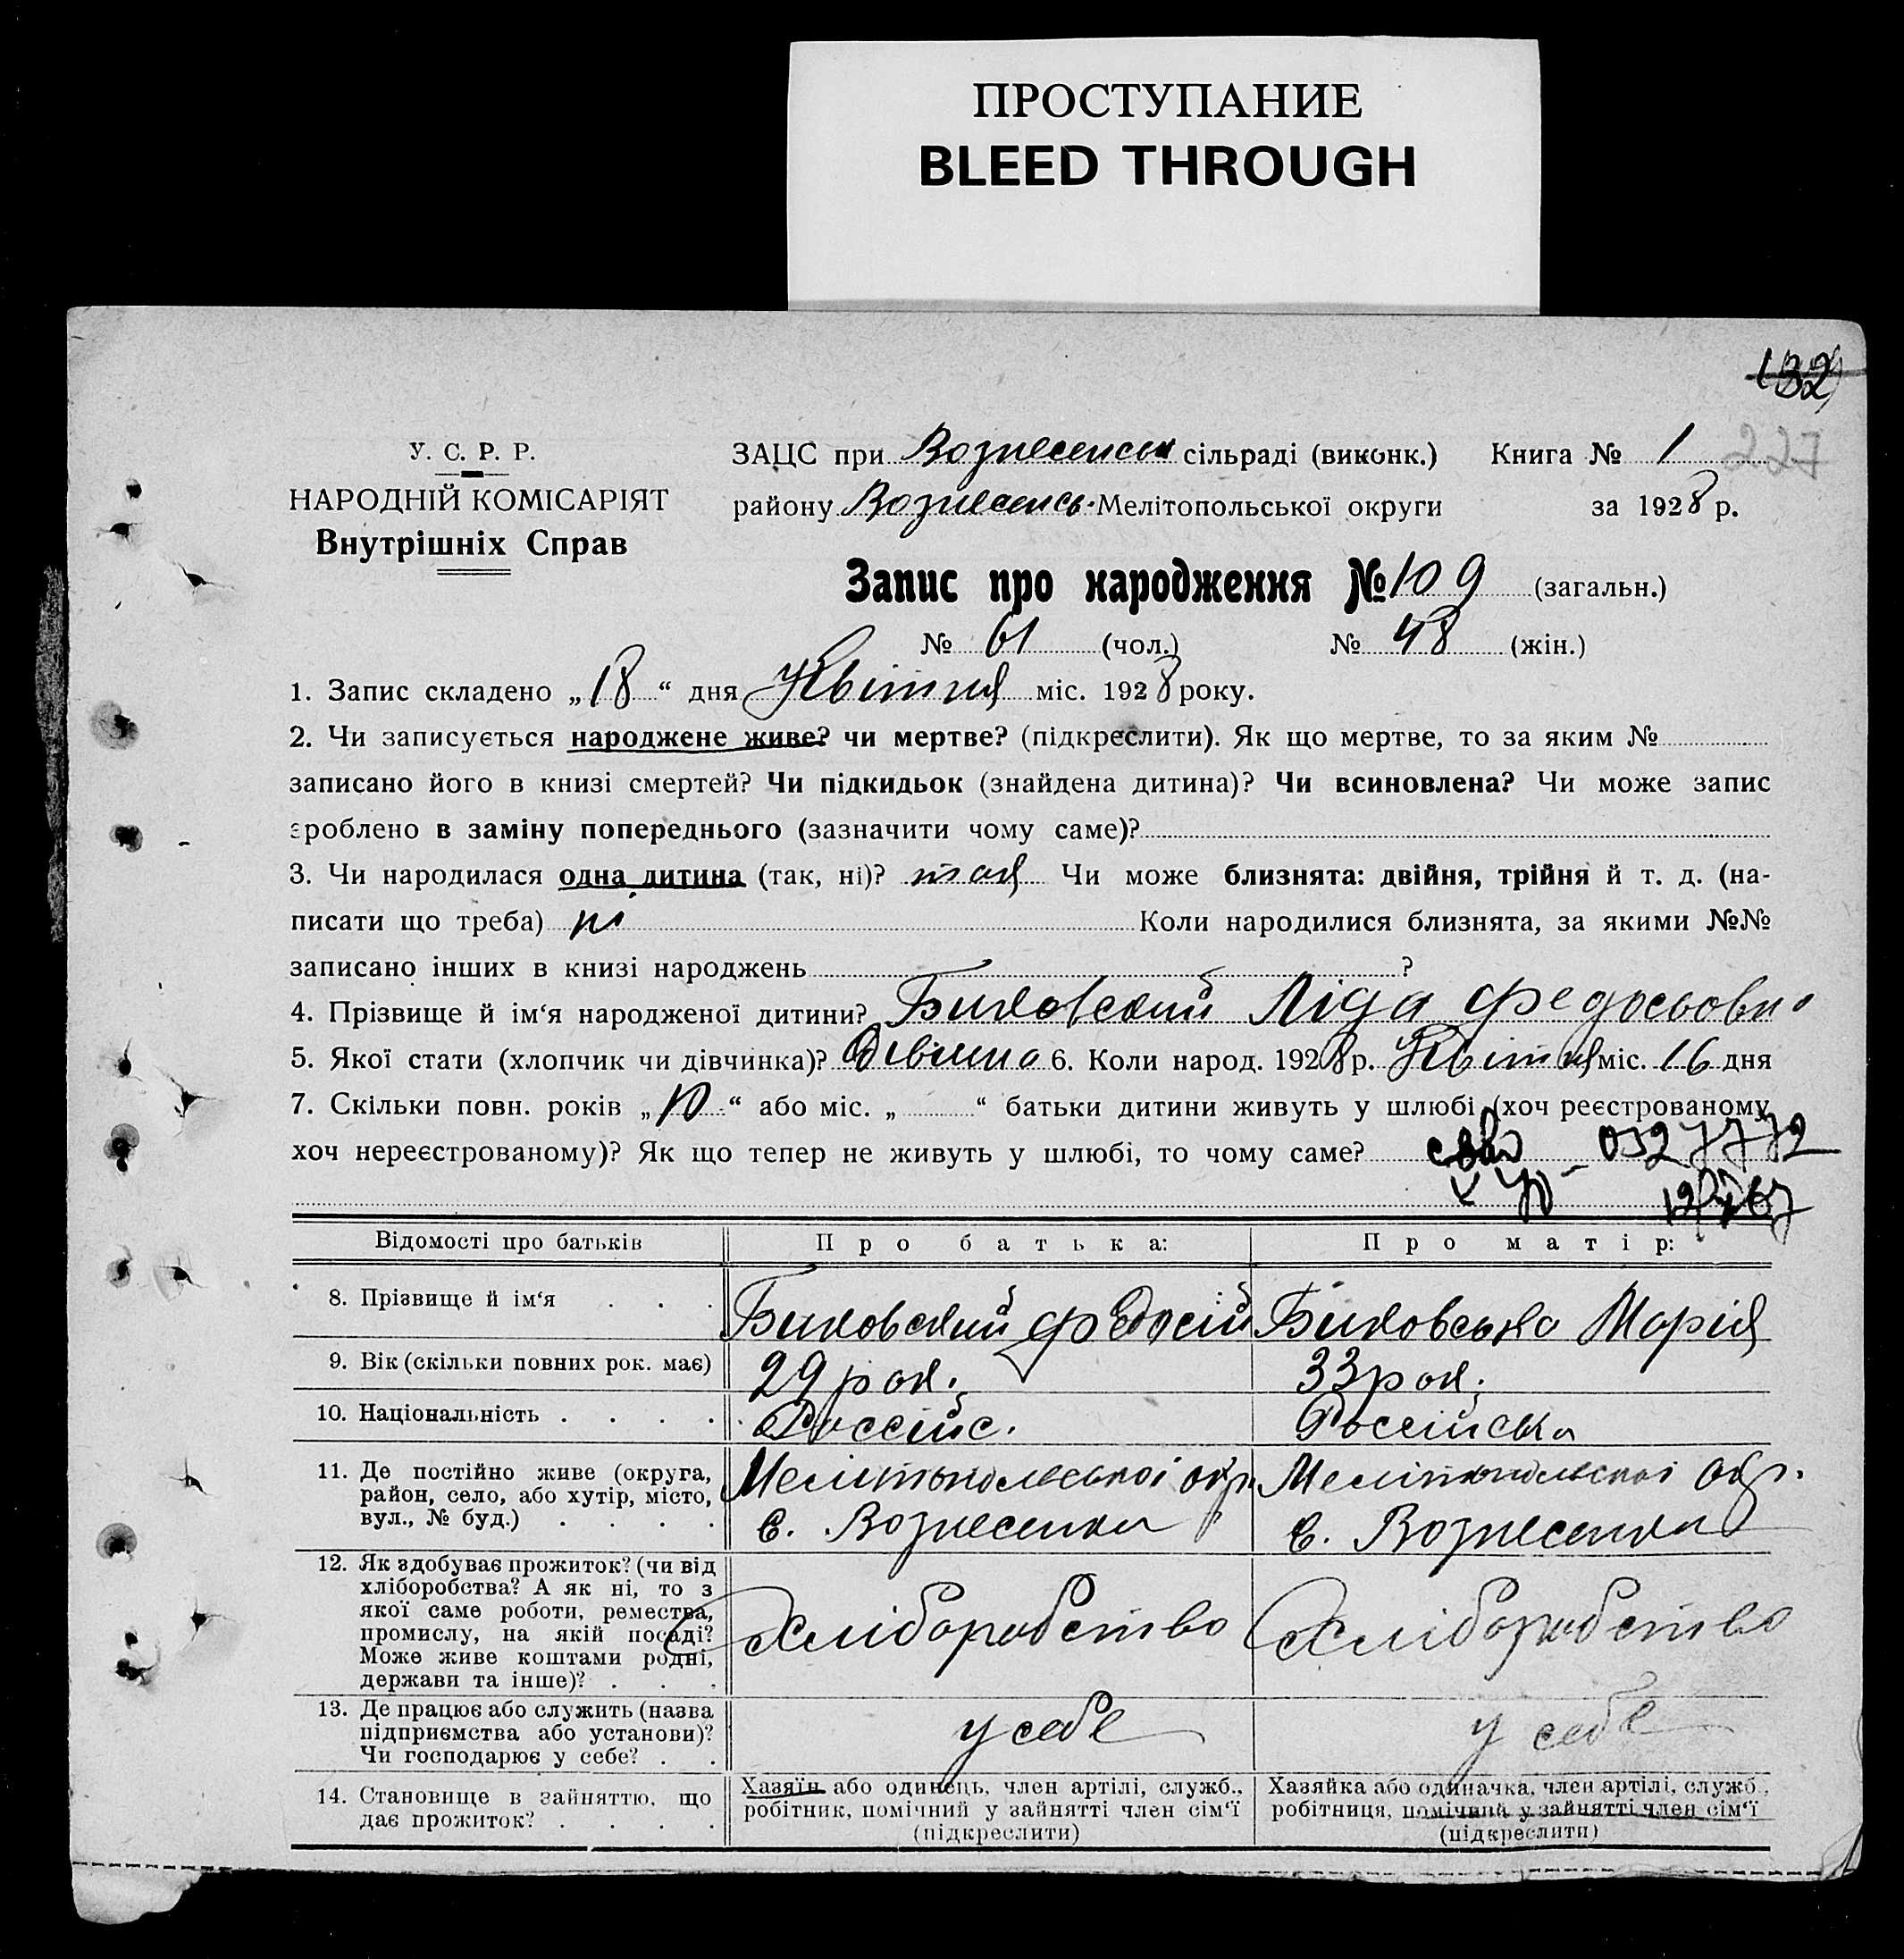 ПРОСТУПАНИЕ
BLEED THROUGH
132
У. С. Р. Р.
НАРОДНІЙ КОМІСАРІЯТ
Внутрішніх Справ
ЗАЦС при Вознесенськ сільраді (виконк.) Книга № 1 227
району Вознесенсь. Мелітопольської округи за 1928 р.
Запис про народження № 109 (загальн.)
№ 61 (чол.) № 48 (жін.)
1. Запис складено „18“ дня Квітня міс. 1928 року.
2. Чи записується народжене живе? чи мертве? (підкреслити). Як що мертве, то за яким №
записано його в книзі смертей? Чи підкидьок (знайдена дитина)? Чи всиновлена? Чи може запис
зроблено в заміну попереднього (зазначити чому саме)?
3. Чи народилася одна дитина (так, ні)? так Чи може близнята: двійня, трійня й т. д. (на-
писати що треба) ні Коли народилися близнята, за якими №№
записано інших в книзі народжень ?
4. Прізвище й ім‘я народженої дитини? Биковский Ліда Федосьовна
5. Якої стати (хлопчик чи дівчинка)? Дівчина 6. Коли народ. 1928 р. Квітня міс. 16 дня
7. Скільки повн. років „10“ або міс. „ “ батьки дитини живуть у шлюбі (хоч реєстрованому
хоч нереєстрованому)? Як що тепер не живуть у шлюбі, то чому саме?
Відомості про батьків Про батька: Про матір:
8. Прізвище й ім‘я . . . Биковский Федосій Биковська Марія
9. Вік (скільки повних рок. має) 29 рок. 33 рок.
10. Національність . . . . Россійс. Россійська
11. Де постійно живе (округа, район, село, або хутір, місто, вул., № буд.) . . . . Мелітопольської окр. с. Вознесенка Мелітопольскої окр. с. Вознесенка
12. Як здобуває прожиток? (чи від хліборобства? А як ні, то з якої саме роботи, ремества, промислу, на якій посаді? Може живе коштами родні, держави та інше)? . . . Хліборобство Хліборобство
13. Де працює або служить (назва підприємства або установи)? Чи господарює у себе? . . у себе у себе
14. Становище в зайняттю, що дає прожиток? . . . . Хазяїн або одинець, член артілі, служб., робітник, помічний у зайнятті член сім‘ї (підкреслити) Хазяйка або одиначка, член артілі, служб., робітниця, помічний у зайнятті член сім‘ї (підкреслити)